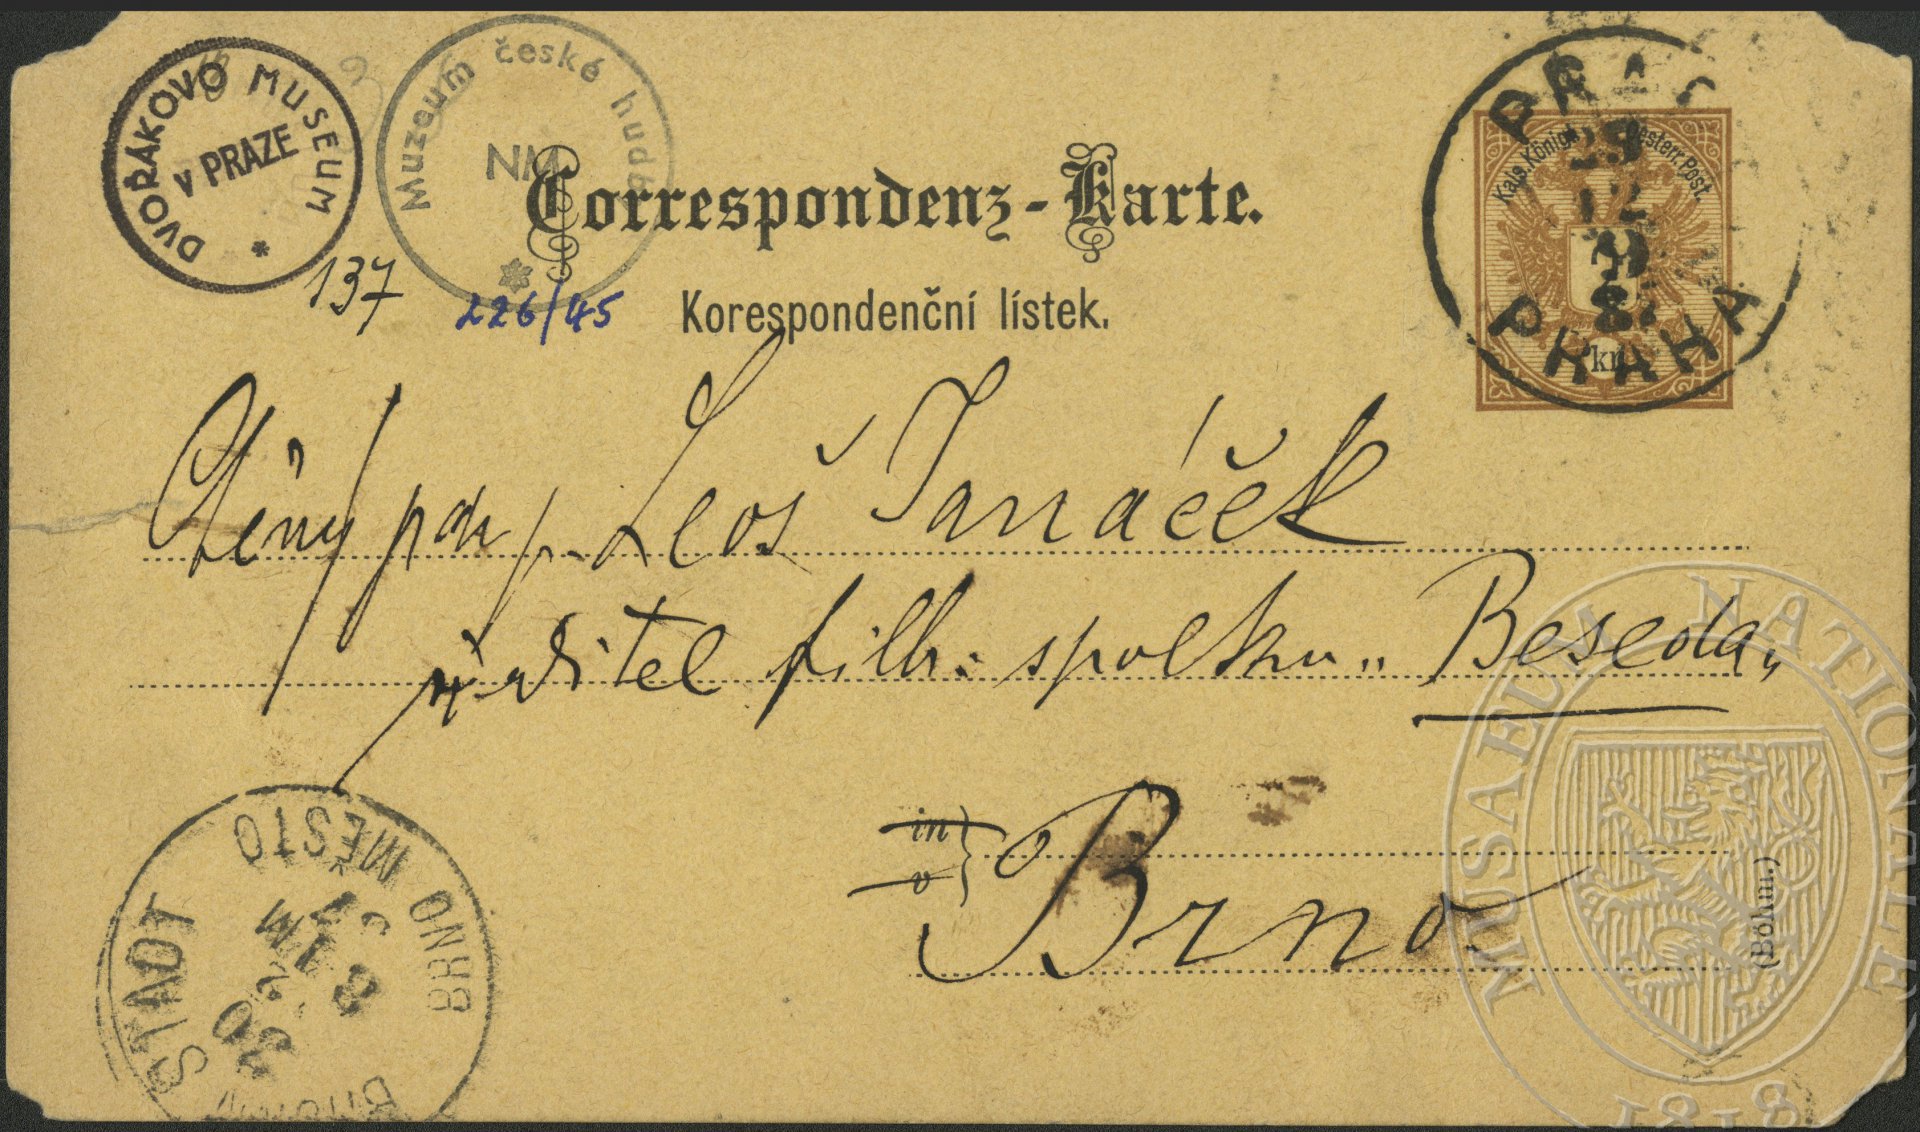 DVOŘÁKOVO MUSEUM
V PRAZE
*
Muzeum české hudby
NM
137
226/45
Correspondenz-Karte.
Korespondenční lístek.
Kais. Königl. Oesterr. Post.
kr.
PRAG
29
12
PRAHA
Ctěný pan p. Leoš Janáček
ředitel filh. spolku „Beseda„
in
v
Brno
(Böhm.)
BRNO MĚSTO
STADT
30
12
8 FM
MUSAEUM NATIONALE
1818